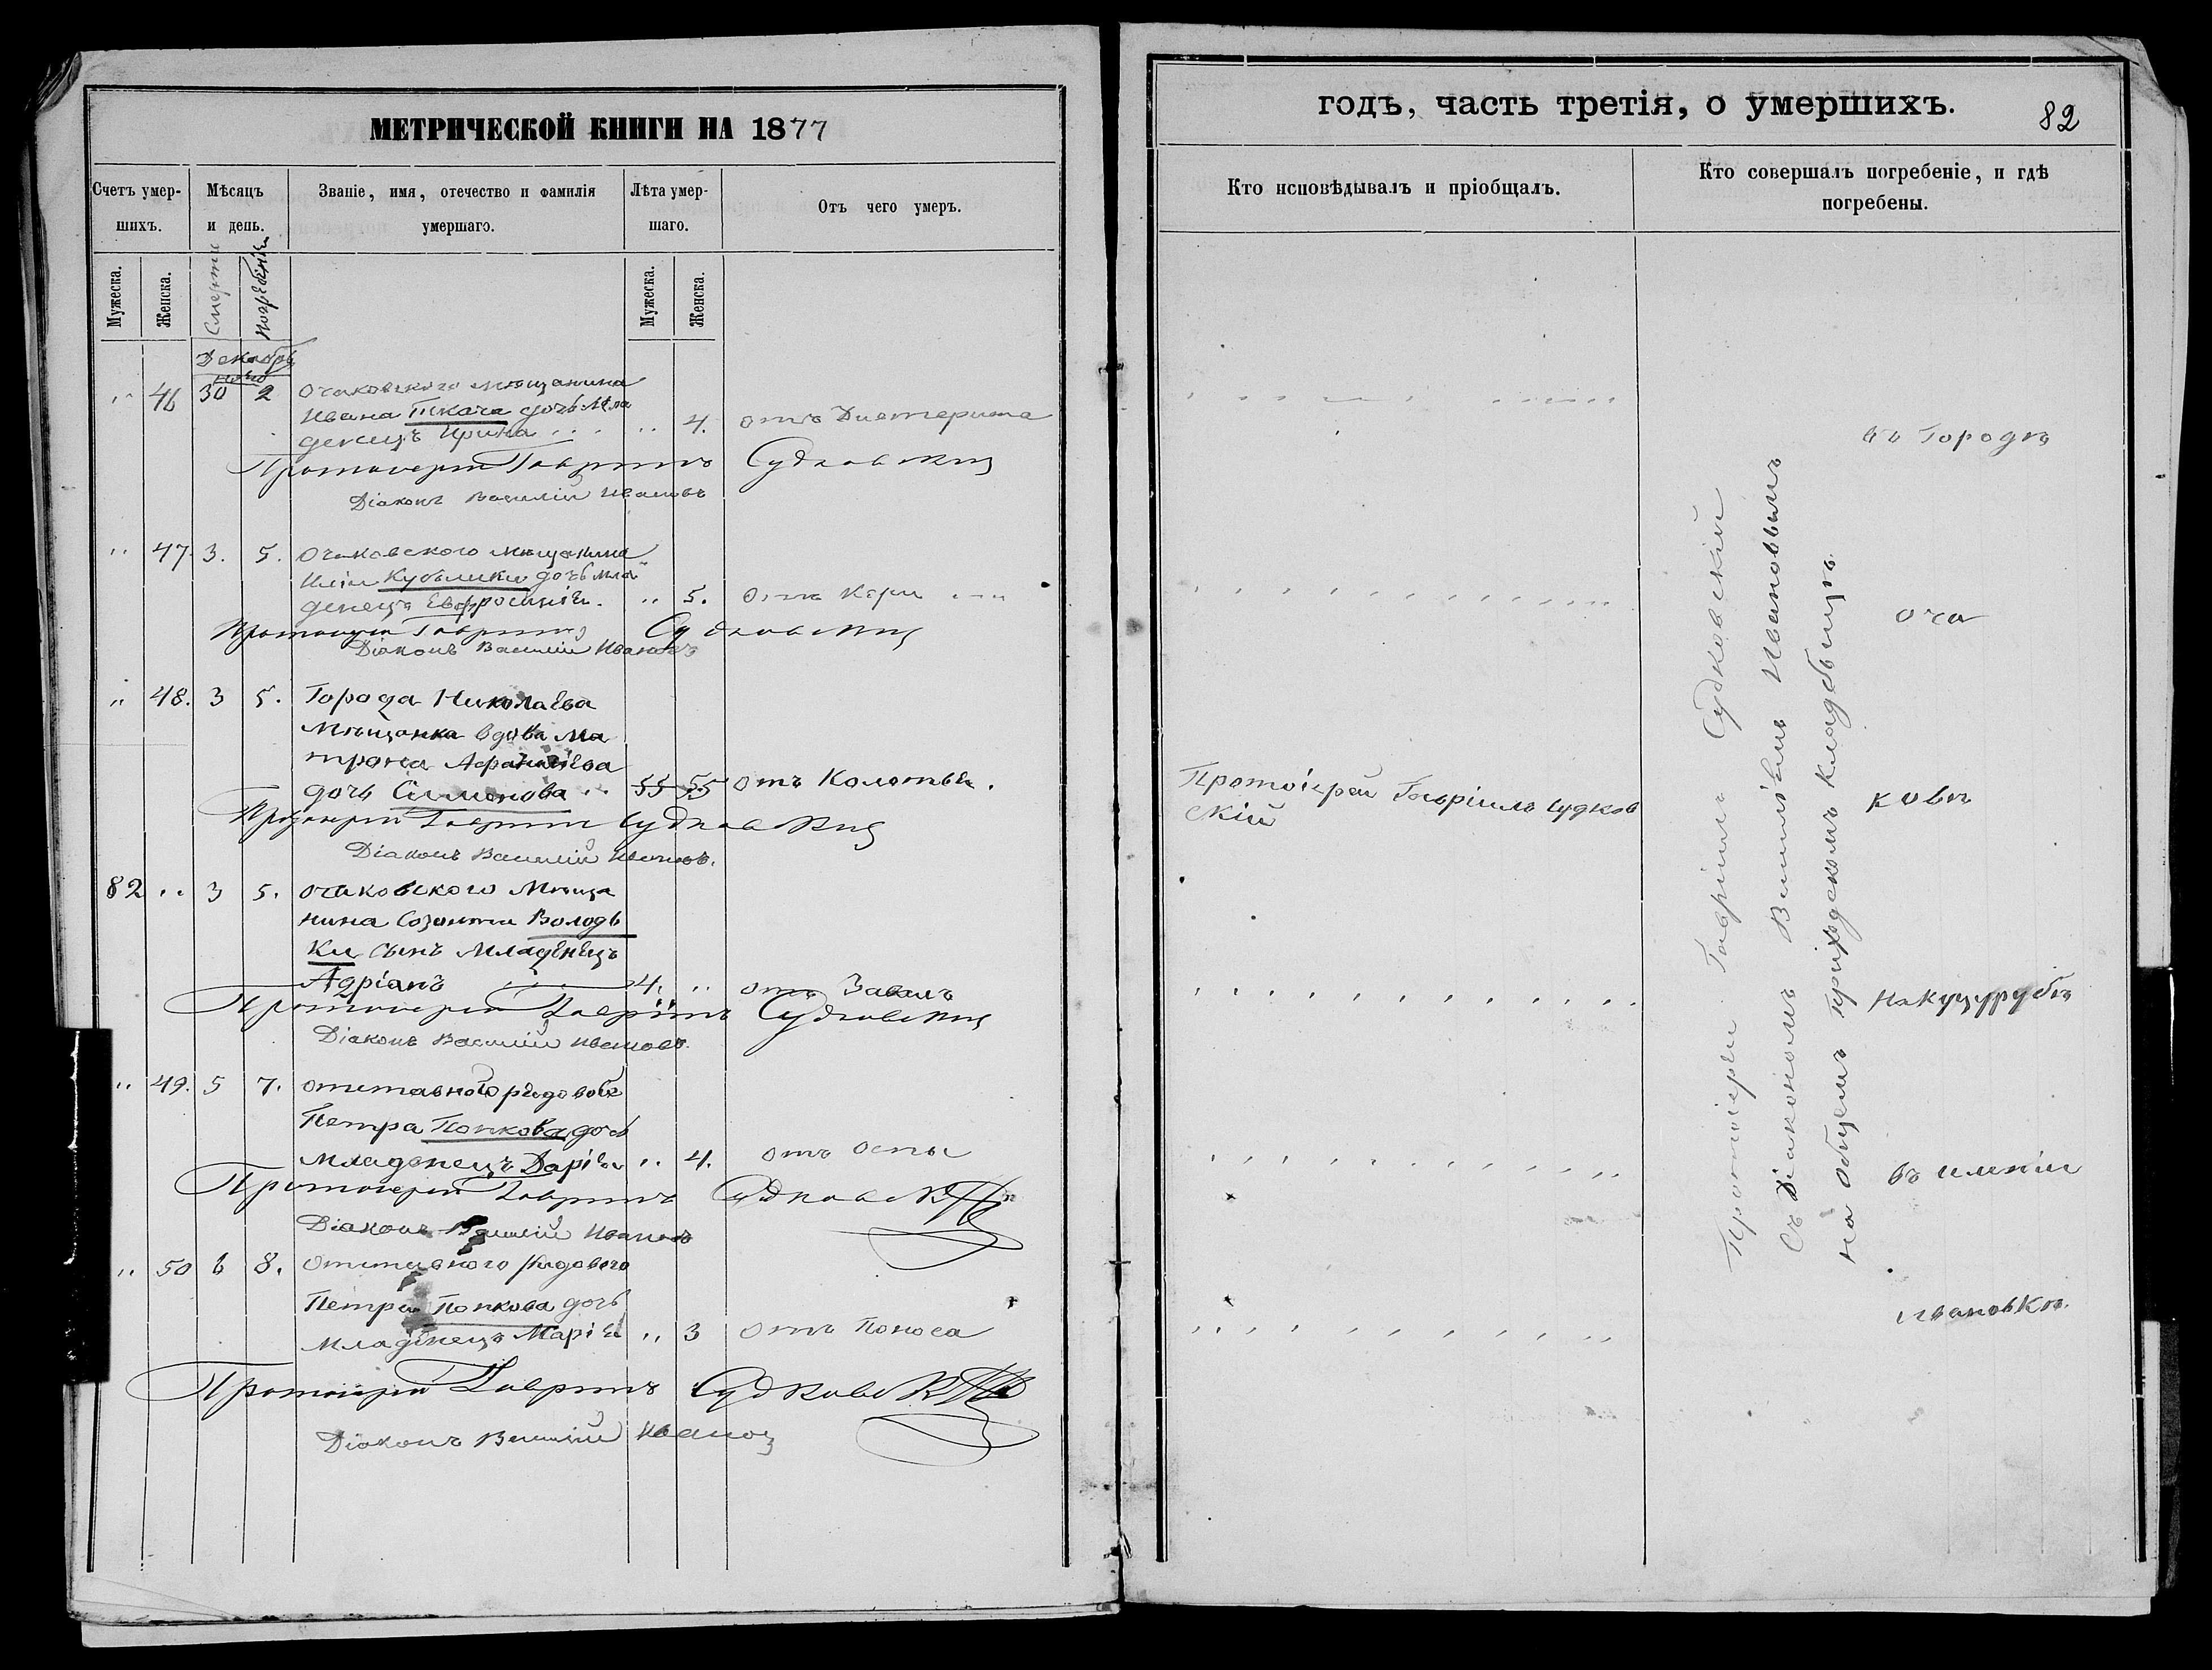 МЕТРИЧЕСКОЙ КНИГИ НА 1877
Счетъ умер-
шихъ.
Мѣсяцъ
и день.
Званіе, имя, отечество и фамилія
умершаго.
Лѣта умер-
шаго.
Отъ чего умеръ.
Мужеска.
Женска.
Смерти
Погребенія
Мужеска.
Женска.
Декабрь
ноябр
,, 46 30 2 Очаковского мѣщанина
Ивана Ткача дочь мла
денецъ Ирина .. 4. отъ Дифтерита
Протоіерей Гавріилъ Судковскій
Діаконъ Василій Ивановъ
,, 47. 3. 5. Очаковского мѣщанина
Иліи Кубышки дочь мла
денецъ Евфросинія. .. 5. отъ Кори
Протоіерей Гавріилъ Судковскій
Діаконъ Василій Ивановъ
,, 48. 3 5. Города Николаева
Мѣщанка вдова Ма
трона Афанасіева
дочь Симонова .. 55 55 отъ Колотья.
Протоіерей Гавріилъ Судковскій
Діаконъ Василій Ивановъ.
82 ,, 3 5. Очаковского Мѣща
нина Созонта Володь
ки сынъ младенецъ
Адріанъ 4. .. отъ Завалъ
Протоіерей Гавріилъ Судковскій
Діаконъ Василій Ивановъ.
,, 49. 5 7. отставного рядового
Петра Попкова дочь
младенецъ Дарія .. 4. отъ оспы
Протоіерей Гавріилъ Судковскій
Діаконъ Василій Ивановъ
,, 50 6 8. отставного рядового
Петра Попкова дочь
младенецъ Марія ,, 3 отъ Поноса
Протоіерей Гавріилъ Судковскій
Діаконъ Василій Ивановъ
годъ, часть третія, о умершихъ.
82
Кто исповѣдывалъ и пріобщалъ.
Кто совершалъ погребеніе, и гдѣ
погребены.
Протоіерей Гавріилъ Судков
скій
Протоіерей Гавріилъ Судковскій
Съ Діакономъ Василіемъ Ивановымъ
на общемъ приходскомъ кладбищѣ
въ Городѣ
Оча
ковѣ
на Куцурубѣ
въ имѣніи
Ивановкѣ.